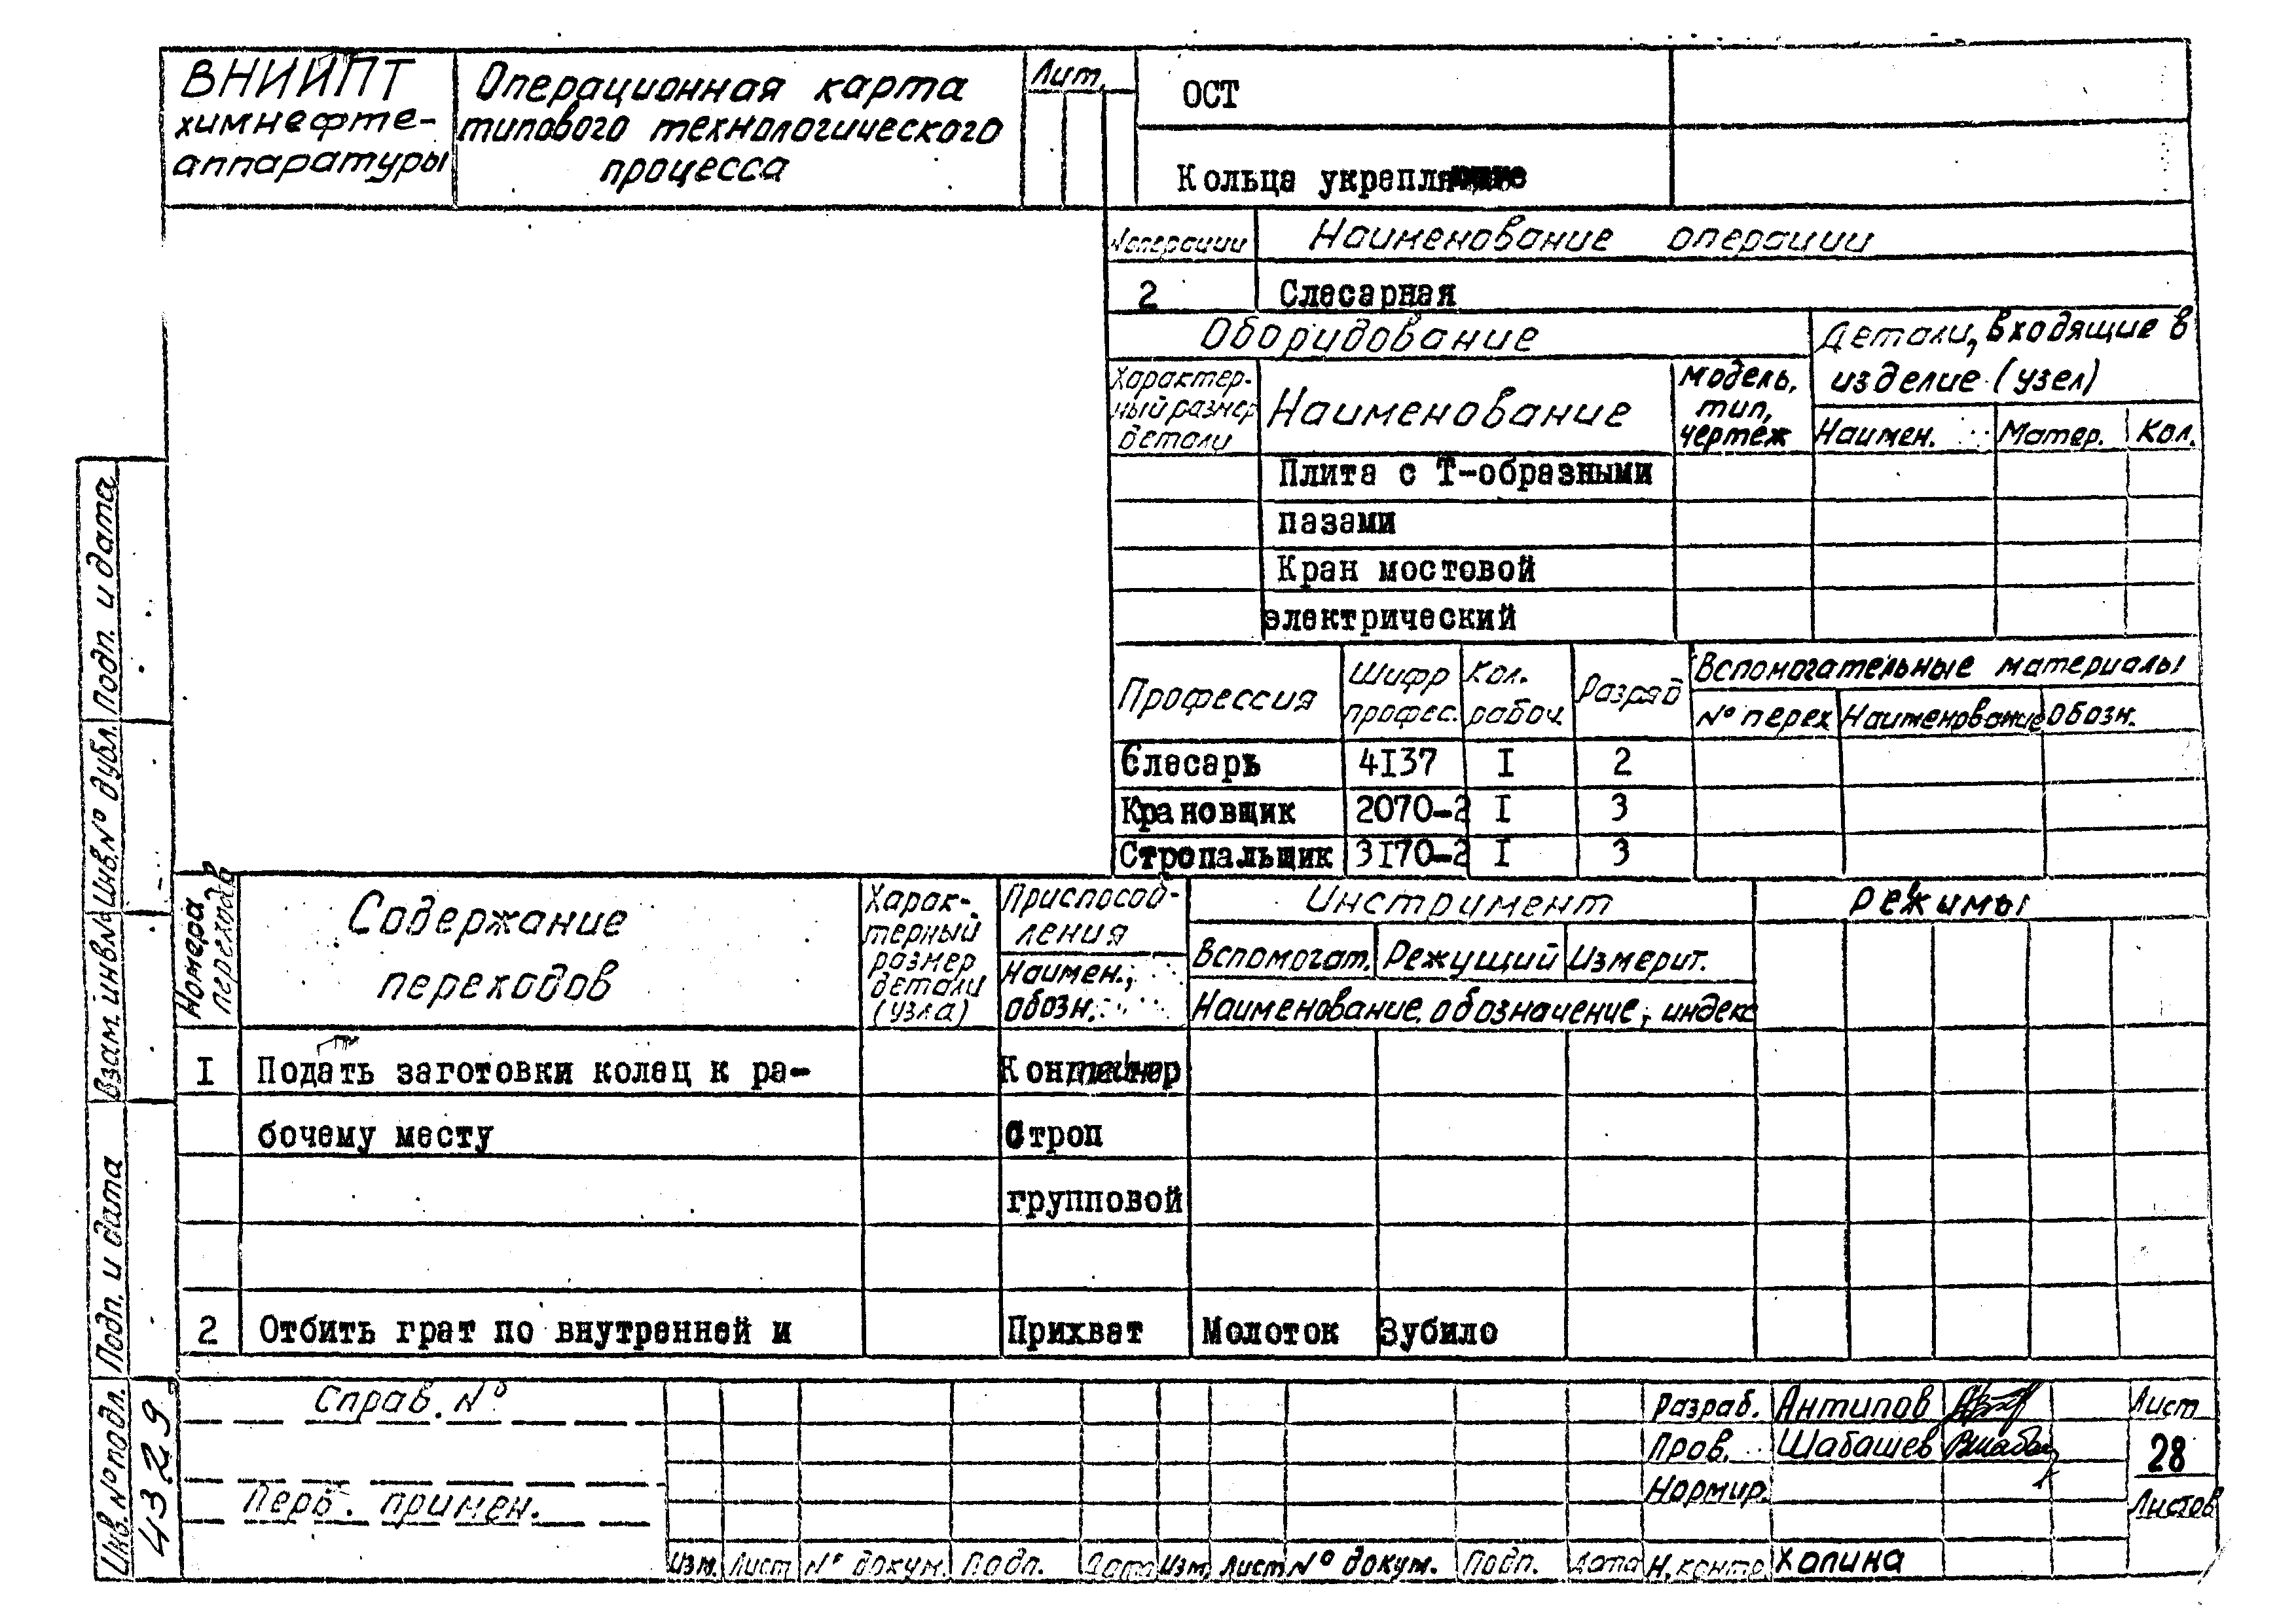 ВНИИПТ
химнефте-
аппаратуры
Операционная карта
типового технологического
процесса
Лит.
ОСТ
Кольца укрепляющие
№ операции
Наименование операции
2
Слесарная
Оборудование
Детали, входящие в
изделие (узел)
Характер-
ный размер
детали
Наименование
Модель,
тип,
чертеж
Наимен.
Матер.
Кол.
Плита с Т-образными
пазами
Кран мостовой
электрический
Профессия
Шифр
профес.
Кол.
рабоч.
Разряд
Вспомогательные материалы
№ перех
Наименование
Обозн.
Слесарь 4I37 I 2
Крановщик 2070-2 I 3
Стропальщик 3I70-2 I 3
Номера
переходов
Содержание
переходов
Харак-
терный
размер
детали
(узла)
Приспособ-
ления
Наимен.,
обозн.
Инструмент
Вспомогат.
Режущий
Измерит.
Наименование, обозначение, индекс
Режимы
I Подать заготовки колец к ра- Контейнер
бочему месту Строп
групповой
2 Отбить грат по внутренней и Прихват Молоток Зубило
Подп. и дата
Инв. № дубл.
Взам. инв. №
Подп. и дата
Инв. № подл.
4329
Справ. №
Перв. примен.
Изм. Лист № докум. Подп. Дата Изм. Лист № докум. Подп. Дата
Разраб. Антипов
Пров. Шабашев
Нормир.
Н. контр. Халина
Лист
28
Листов